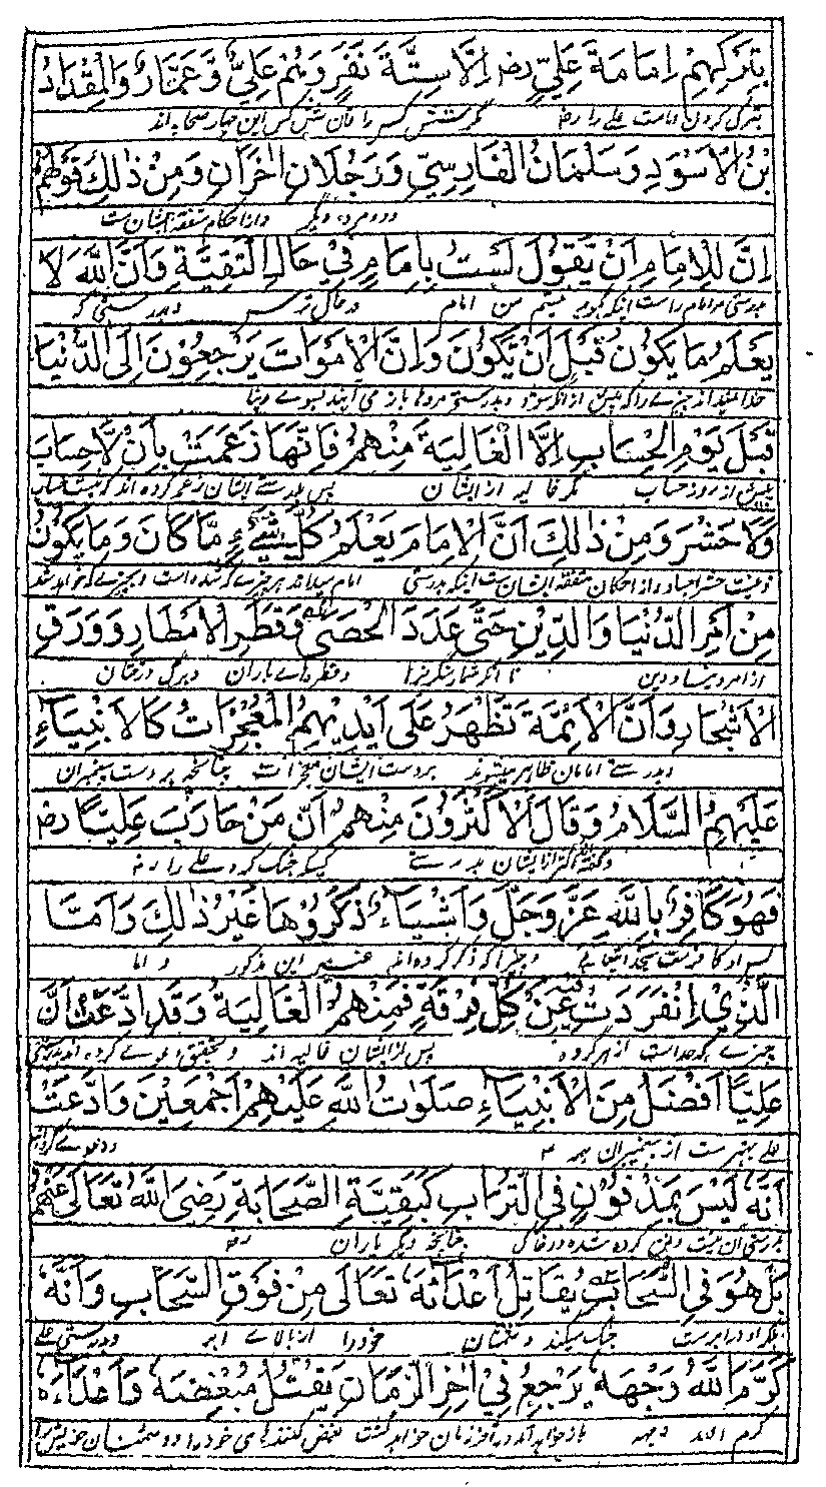 بِتَرْكِهِمْ اِمَامَةَ عَلِيٍّ رض اِلَّا سِتَّةَ نَفَرٍ وَهُمْ عَلِيٌّ وَعَمَّارٌ وَالْمِقْدَادُ
بترک کردن امامت علی را رض مگر شش کس را
بْنُ الْاَسْوَدِ وَسَلْمَانُ الْفَارِسِيّ وَرَجُلَانِ اٰخَرَانِ وَمِنْ ذٰلِكَ قَوْلُهُمْ
و دو مرد دیگر و از احکام متفقه ایشان ست
اِنَّ لِلْاِمَامِ اَنْ يَّقُوْلَ لَسْتُ بِاِمَامٍ فِيْ حَالِ التَّقِيَّةِ وَاَنَّ اللّٰهَ لَا
بدرستی مر امام راست اینکه گوید نیستم من امام در حال ترس و بدرستی که
يَعْلَمُ مَا يَكُوْنُ قَبْلَ اَنْ يَّكُوْنَ وَاِنَّ الْاَمْوَاتَ يَرْجِعُوْنَ اِلَى الدُّنْيَا
خدا نمیداند چیزے را که پیش از انکه شود و بدرستی مردها باز می آیند بسوے دنیا
قَبْلَ يَوْمِ الْحِسَابِ اِلَّا الْغَالِيَةَ مِنْهُمْ فَاِنَّهَا زَعَمَتْ بِاَنْ لَّا حِسَابَ
پیش از روز حساب مگر غالیه از ایشان پس بدرستے ایشان زعم کرده اند که نیست حساب
وَلَا حَشْرَ وَمِنْ ذٰلِكَ اَنَّ الْاِمَامَ يَعْلَمُ كُلَّ شَيْءٍ مَّا كَانَ وَمَا يَكُوْنُ
و نیست حشر اجساد و از احکام متفقه ایشان ست اینکه بدرستی امام میداند هر چیزے که شده است و چیزے که خواهد شد
مِنْ اَمْرِ الدُّنْيَا وَالدِّيْنِ حَتّٰى عَدَدَ الْحَصٰى وَقَطْرِ الْاَمْطَارِ وَوَرَقِ
از امر دنیا و دین تا انکه شمار سنگریزها و قطرهاے باران و برگ درختان
الْاَشْجَارِ وَاَنَّ الْاَئِمَّةَ تَظْهَرُ عَلٰى اَيْدِيْهِمُ الْمُعْجِزَاتُ كَالْاَنْبِيَاءِ
و بدرستے امامان ظاهر میشوند بر دست ایشان معجزات چنانکه بر دست پیغمبران
عَلَيْهِمُ السَّلَامُ وَقَالَ الْاَكْثَرُوْنَ مِنْهُمْ اَنَّ مَنْ حَارَبَ عَلِيًّا رض
و گفته اکثر از ایشان بدرستے کسیکه جنگ کرد علی را رض
فَهُوَ كَافِرٌ بِاللّٰهِ عَزَّ وَجَلَّ وَاَشْيَاءَ ذَكَرُوْهَا غَيْرَ ذٰلِكَ وَاَمَّا
پس او کافرست بخدا و چیزها که ذکر کرده اند غیر این مذکور و اما
الَّذِيْ انْفَرَدَتْ عَنْ كُلِّ فِرْقَةٍ فَمِنْهُمُ الْغَالِيَةُ وَقَدِ ادَّعَتْ اَنَّ
چیزے که جداست از هر گروه پس از ایشان غالیه اند و تحقیق دعوے کرده اند بدرستی
عَلِيًّا اَفْضَلُ مِنَ الْاَنْبِيَاءِ صَلَوٰتُ اللّٰهِ عَلَيْهِمْ اَجْمَعِيْنَ وَادَّعَتْ
علی بهترست از پیغمبران همه و دعوے کرده اند
اَنَّهٗ لَيْسَ بِمَدْفُوْنٍ فِي التُّرَابِ كَبَقِيَّةِ الصَّحَابَةِ رَضِيَ اللّٰهُ تَعَالٰى عَنْهُمْ
بدرستی آن نیست دفن کرده شده در خاک چنانچه دیگر یاران رض
بَلْ هُوَ فِي السَّحَابِ يُقَاتِلُ اَعْدَائَهٗ تَعَالٰى مِنْ فَوْقِ السَّحَابِ وَاَنَّهٗ
بلکه او در ابرست جنگ میکند دشمنان خود را از بالاے ابر و بدرستی علی
كَرَّمَ اللّٰهُ وَجْهَهٗ يَرْجِعُ فِيْ اٰخِرِ الزَّمَانِ يَقْتُلُ مُبْغِضَهٗ وَاَعْدَاءَهٗ
کرم الله وجهه باز خواهد آمد در آخر زمان خواهد کشت بغض کنندهای خود را و دشمنان خویش را